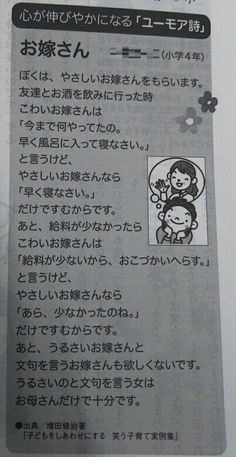 心が伸びやかになる「ユーモア詩」
お嫁さん
(小学4年)
ぼくは、やさしいお嫁さんをもらいます。
友達とお酒を飲みに行った時
こわいお嫁さんは
「今まで何やってたの。
早く風呂に入って寝なさい。」
と言うけど、
やさしいお嫁さんなら
「早く寝なさい。」
だけですむからです。
あと、給料が少なかったら
こわいお嫁さんは
「給料が少ないから、おこづかいへらす。」
と言うけど、
やさしいお嫁さんなら
「あら、少なかったのね。」
だけですむからです。
あと、うるさいお嫁さんと
文句を言うお嫁さんも欲しくないです。
うるさいのと文句を言う女は
お母さんだけで十分です。
●出典／増田修治著
「子どもをしあわせにする 笑う子育て実例集」